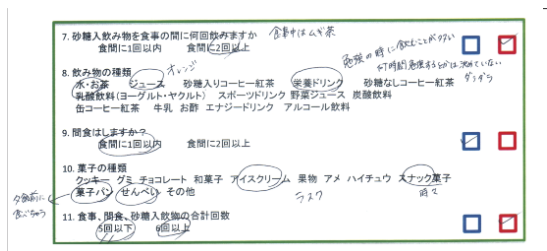 7. 砂糖入飲み物を食事の間に何回飲みますか 食事中はムギ茶
食間に1回以内 食間に2回以上
勉強の時に飲むことが多い
8. 飲み物の種類 オレンジ
何時間勉強するかは決めていない
ダラダラ
水・お茶 ジュース 砂糖入りコーヒー紅茶 栄養ドリンク 砂糖なしコーヒー紅茶
乳酸飲料(ヨーグルト・ヤクルト) スポーツドリンク 野菜ジュース 炭酸飲料
缶コーヒー紅茶 牛乳 お酢 エナジードリンク アルコール飲料
9. 間食はしますか?
食間に1回以内 食間に2回以上
10. 菓子の種類
クッキー グミ チョコレート 和菓子 アイスクリーム 果物 アメ ハイチュウ スナック菓子
菓子パン せんべい その他 ラスク 時々
夕食前に
食べちゃう
11. 食事、間食、砂糖入飲物の合計回数
5回以下 6回以上